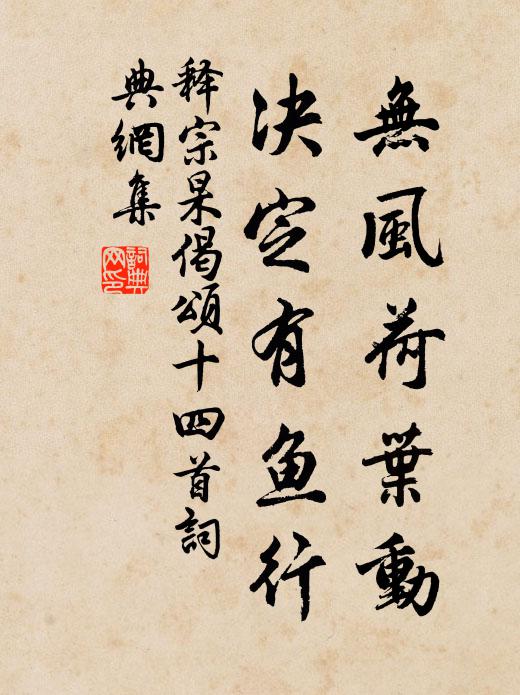 無風荷葉動
决定有魚行
释宗杲偈頌十四首詞
典網集
詞典網印